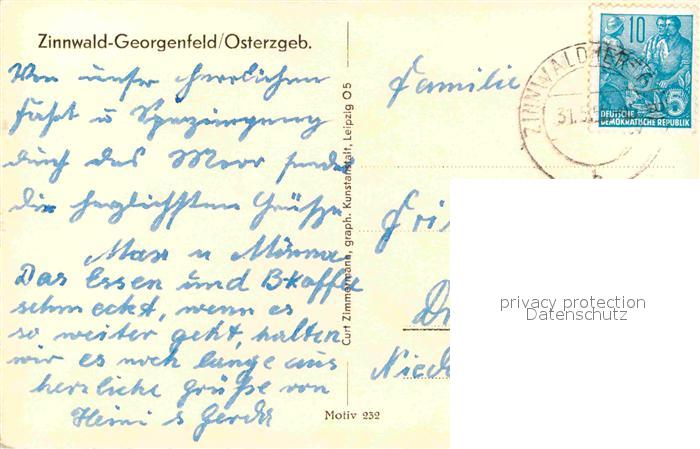 Zinnwald-Georgenfeld/Osterzgeb.
Von unser herrlichen
Fahrt u Spaziergang
durch das Moor senden
die herzlichsten Grüße
Max u
Das Essen und B-Kaffee
schmeckt, wenn es
so weiter geht, halten
wir es noch lange aus
herzliche Grüße von
Heini &
Curt Zimmermann, graph. Kunstanstalt, Leipzig O 5
Motiv 232
Familie
10
5
DEUTSCHE
DEMOKRATISCHE REPUBLIK
31.5.
privacy protection
Datenschutz